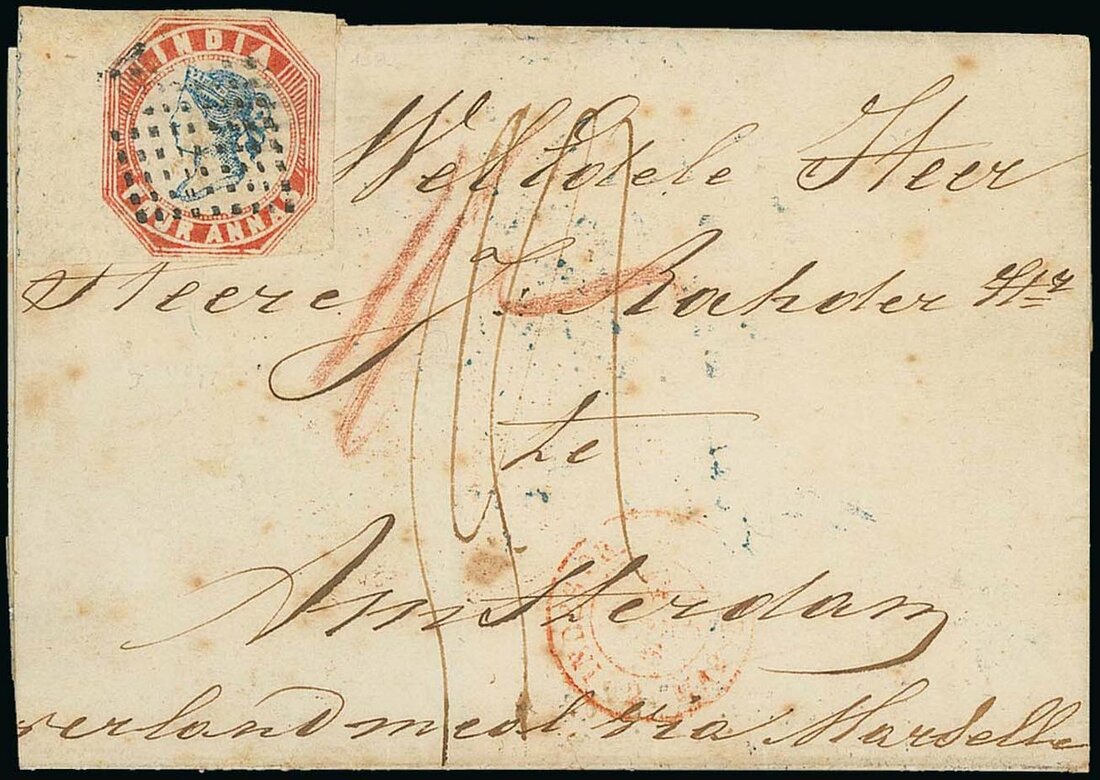 INDIA
FOUR ANNAS
WelEdele Heer
Heere J. Rahder Hz
te
Amsterdam
verlandmeal via Marseille